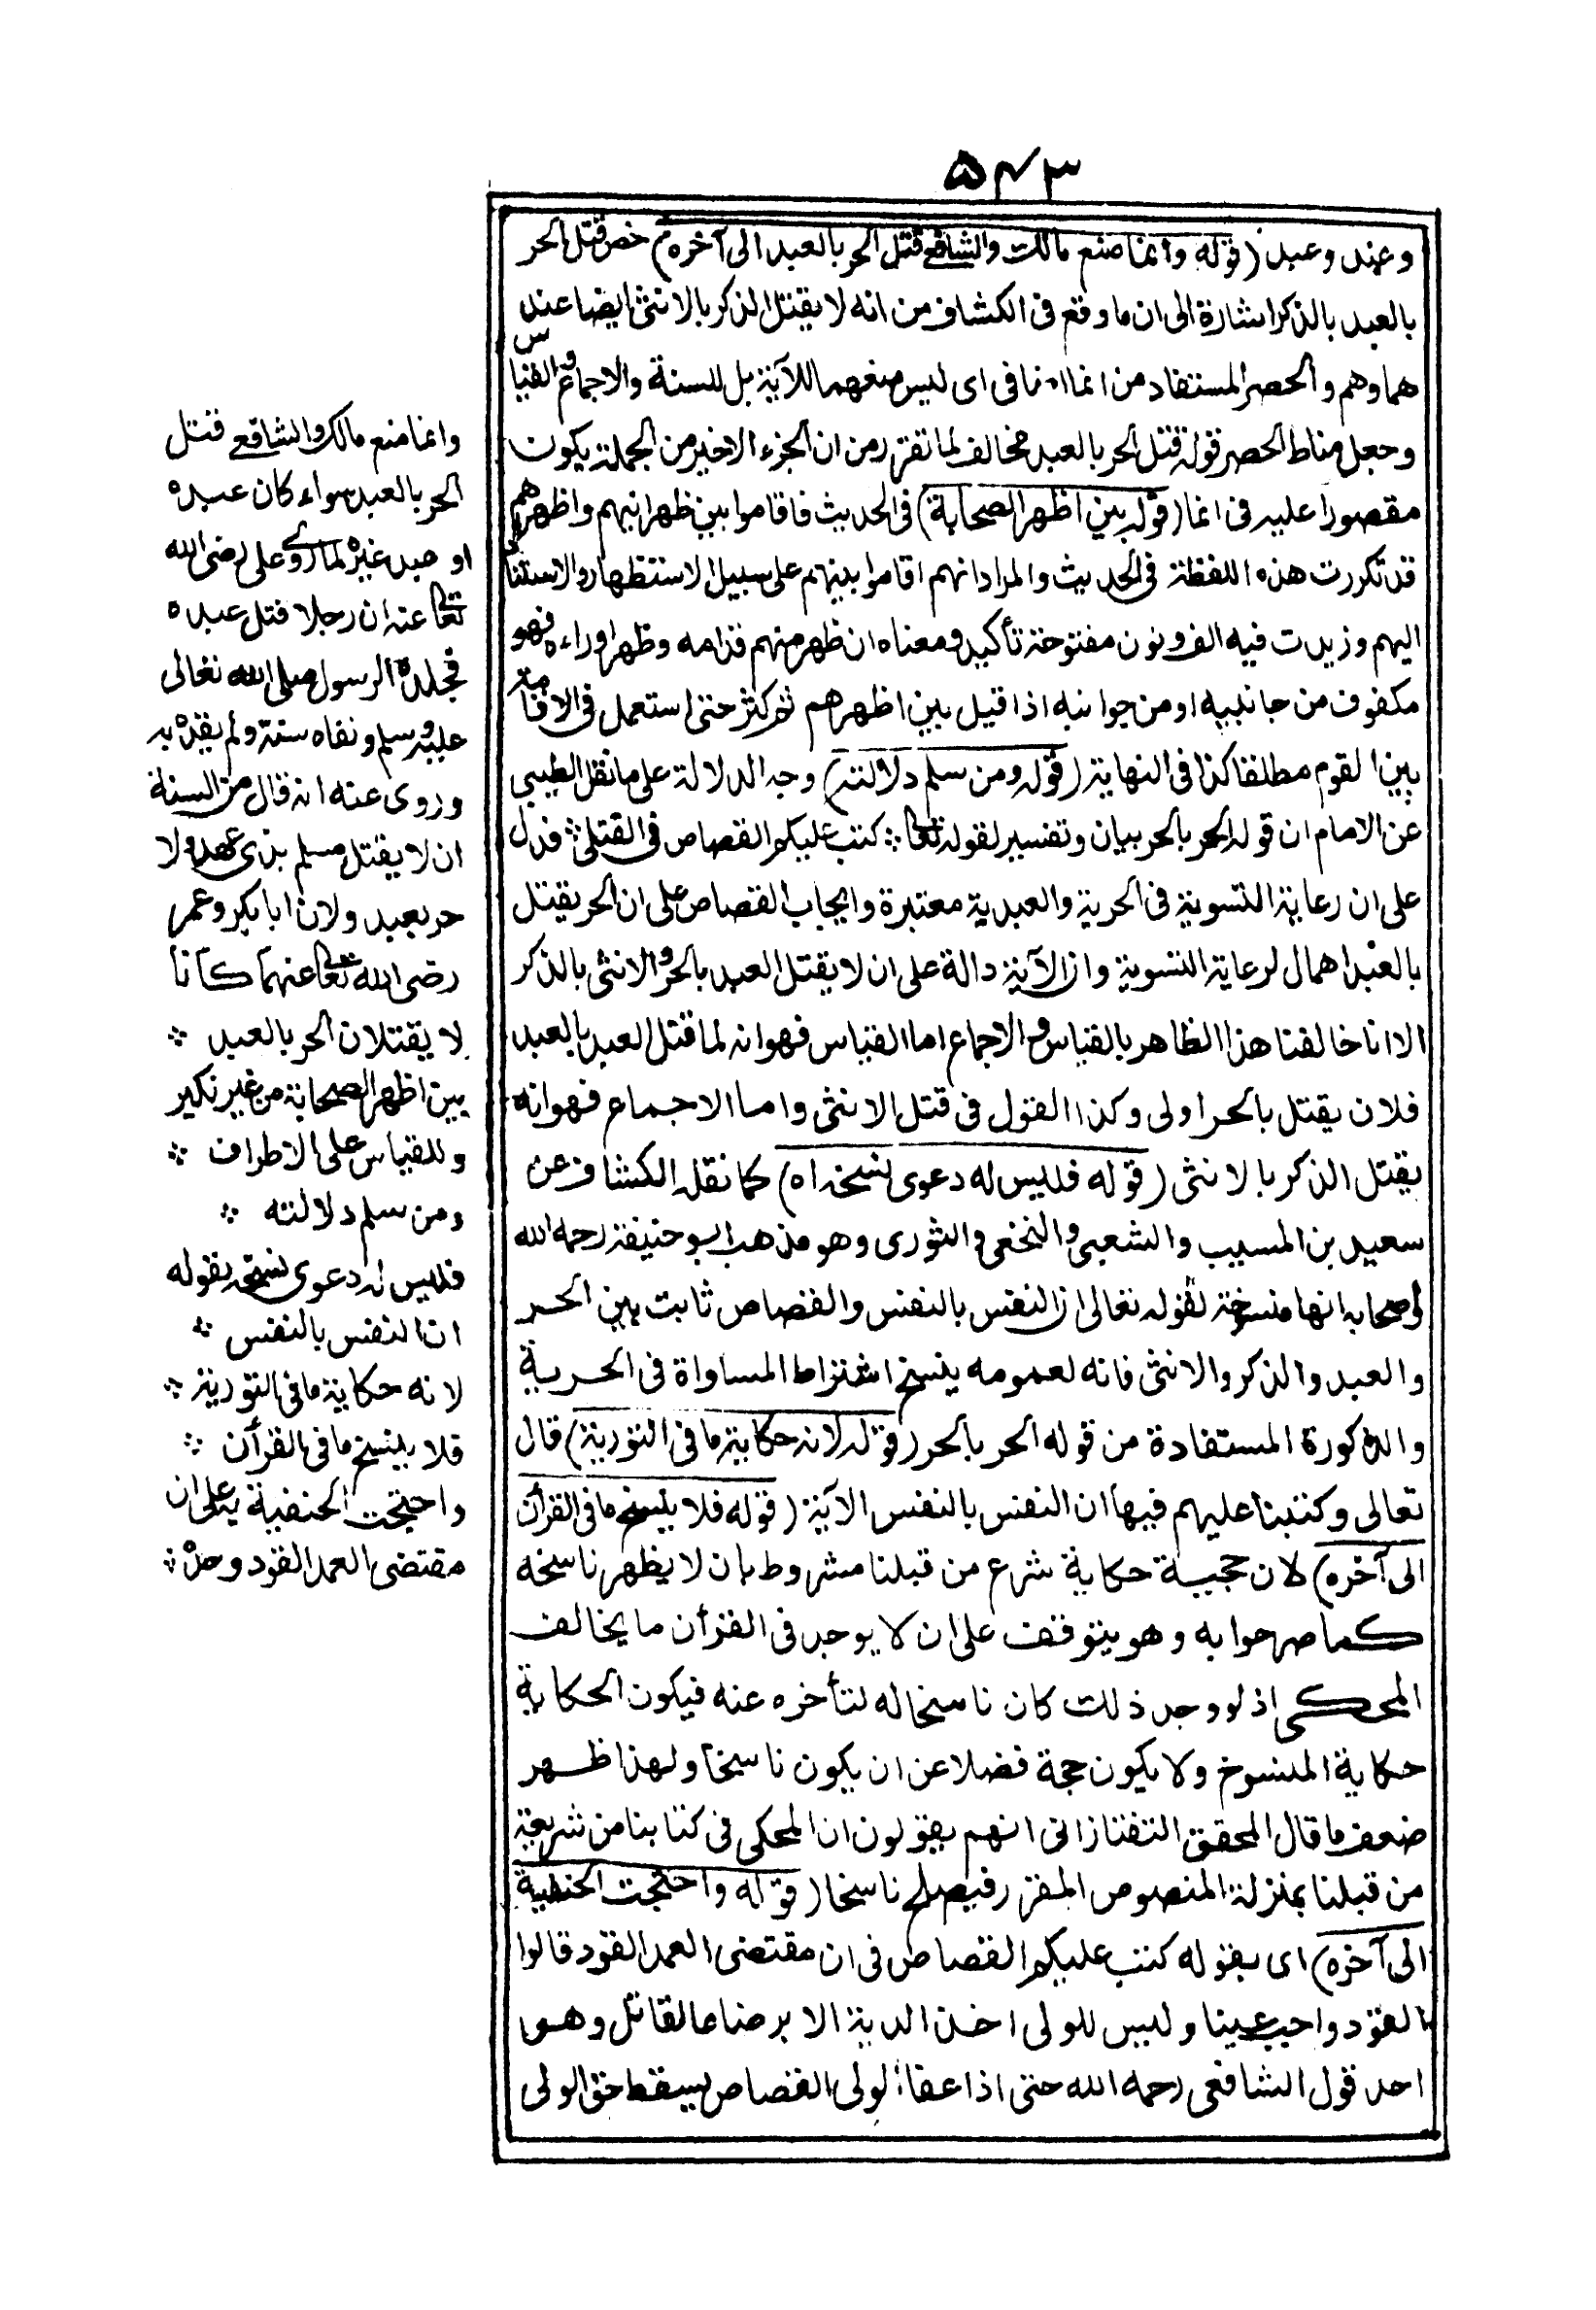 ۵۴۳
وعهد وعبد (قوله وانما منع مالك والشافعي قتل الحر بالعبد الى آخره) خص قتل الحر
بالعبد بالذكر اشارة الى ان ما وقع فى الكشاف من انه لا يقتل الذكر بالانثى ايضا عند
هما وهم والحصر المستفاد من انما اضافى اى ليس منعهما للآية بل للسنة والاجماع والقياس
وجعل مناط الحصر قوله قتل الحر بالعبد مخالف لما تقرر من ان الجزء الاخير من الجملة يكون
مقصورا عليه فى انما (قوله بين اظهر الصحابة) فى الحديث فاقاموا بين ظهرانيهم واظهرهم
قد تكررت هذه اللفظة فى الحديث والمراد انهم اقاموا بينهم على سبيل الاستظهار والاستناد
اليهم وزيدت فيه الف ونون مفتوحة تأكيد ومعناه ان ظهر منهم قدامه وظهرا وراءه فهو
مكفوف من جانبيه او من جوانبه اذا قيل بين اظهرهم ثم كثر حتى استعمل فى الاقامة
بين القوم مطلقا كذا فى النهاية (قوله ومن سلم دلالته) وجه الدلالة على ما نقل الطيبى
عن الامام ان قوله الحر بالحر بيان وتفسير لقوله تعالى كتب عليكم القصاص فى القتلى فدل
على ان رعاية التسوية فى الحرية والعبدية معتبرة وايجاب القصاص على ان الحر يقتل
بالعبد اهمال لرعاية التسوية وان الآية دالة على ان لا يقتل العبد بالحر والانثى بالذكر
الا انا خالفنا هذا الظاهر بالقياس والاجماع اما القياس فهو انه لما قتل العبد بالعبد
فلان يقتل بالحر اولى وكذا القول فى قتل الانثى واما الاجماع فهو انه
يقتل الذكر بالانثى (قوله فليس له دعوى نسخه اه) كما نقله الكشاف عن
سعيد بن المسيب والشعبى والنخعى والثورى وهو مذهب ابو حنيفة رحمه الله
واصحابه انها منسوخة لقوله تعالى ان النفس بالنفس والقصاص ثابت بين الحر
والعبد والذكر والانثى فانه لعمومه ينسخ اشتراط المساواة فى الحرية
والذكورة المستفادة من قوله الحر بالحر (قوله لانه حكاية ما فى التورية) قال
تعالى وكتبنا عليهم فيها ان النفس بالنفس الآية (قوله فلا ينسخ ما فى القرأن
الى آخره) لان حجية حكاية شرع من قبلنا مشروط بان لا يظهر ناسخه
كما صرحوا به وهو يتوقف على ان لا يوجد فى القرأن ما يخالف
المحكى اذ لو وجد ذلك كان ناسخا له لتأخره عنه فيكون الحكاية
حكاية المنسوخ ولا يكون حجة فضلا عن ان يكون ناسخا ولهذا ظهر
ضعف ما قال المحقق التفتازانى انهم يقولون ان المحكى فى كتابنا من شريعة
من قبلنا بمنزلة المنصوص المقرر فيصلح ناسخا (قوله واحتجت الحنفية
الى آخره) اى بقوله كتب عليكم القصاص فى ان مقتضى العمد القود قالوا
القود واجب عينا وليس للولى اخذ الدية الا برضاء القاتل وهو
احد قول الشافعى رحمه الله حتى اذا عفا الولى القصاص يسقط حق الولى
وانما منع مالك والشافعي قتل
الحر بالعبد سواء كان عبده
او عبد غيره لما روى على رضى الله
تعالى عنه ان رجلا قتل عبده
فجلده الرسول صلى الله تعالى
عليه وسلم ونفاه سنة ولم يقده به
وروى عنه انه قال من السنة
ان لا يقتل مسلم بذى عهد ولا
حر بعبد ولان ابا بكر وعمر
رضى الله تعالى عنهما كانا
لا يقتلان الحر بالعبد
بين اظهر الصحابة من غير نكير
وللقياس على الاطراف
ومن سلم دلالته
فليس له دعوى نسخه بقوله
ان النفس بالنفس
لانه حكاية ما فى التورية
فلا ينسخ ما فى القرآن
واحتجت الحنفية به على ان
مقتضى العمد القود وحده